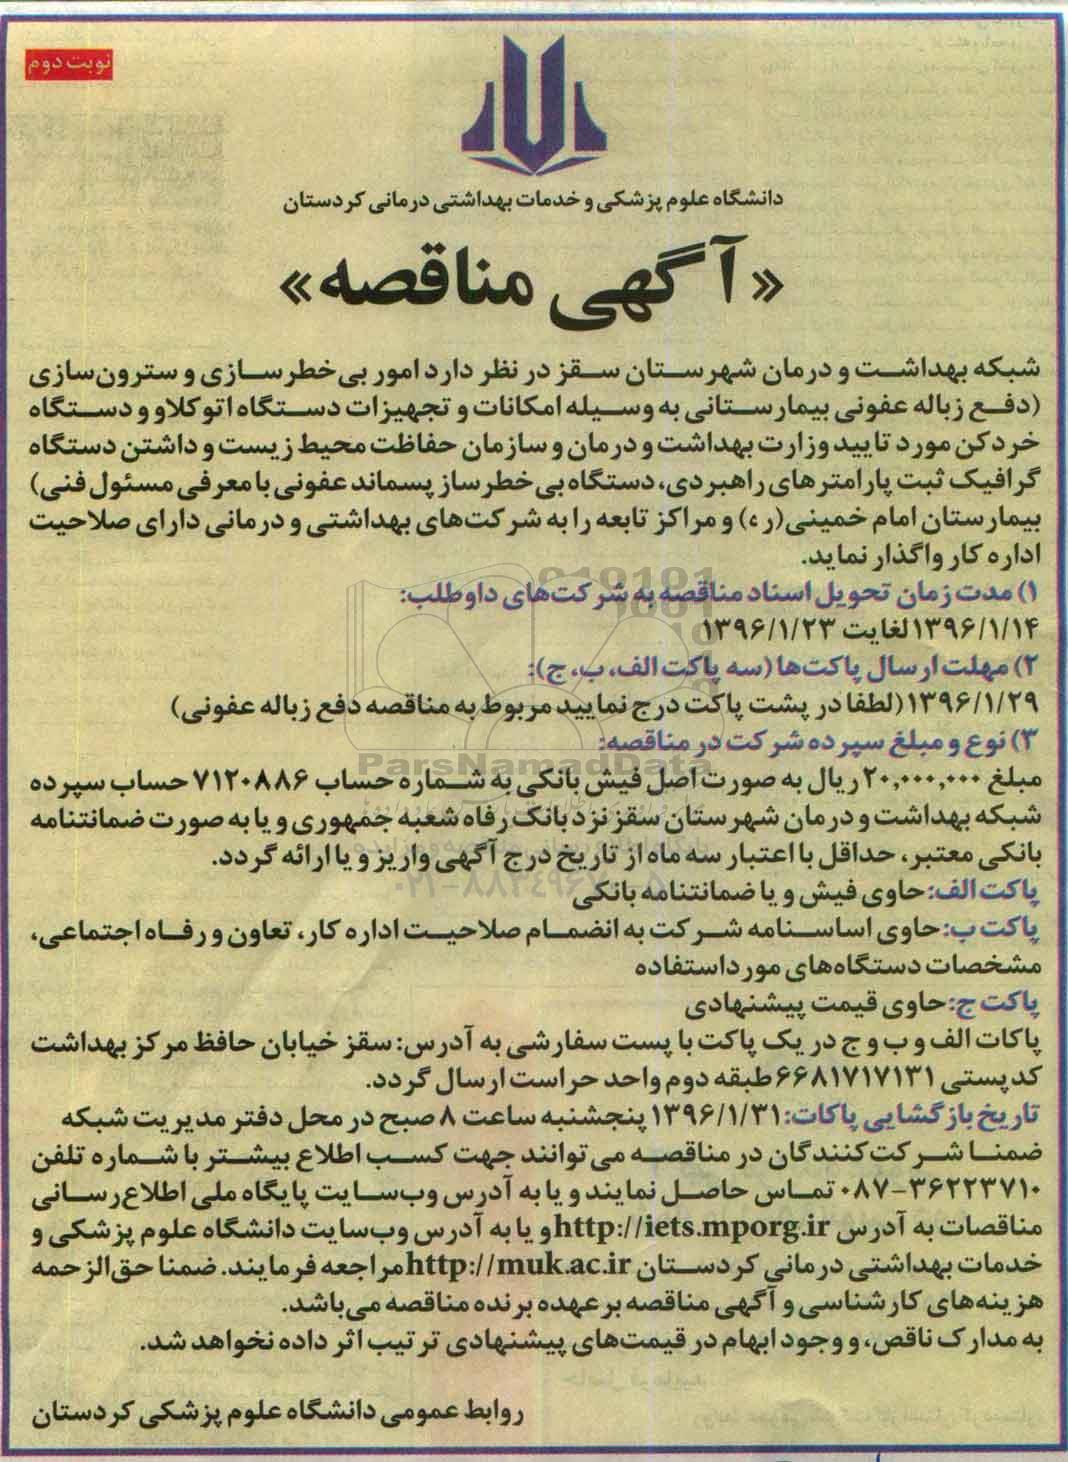 نوبت دوم
دانشگاه علوم پزشکی و خدمات بهداشتی درمانی کردستان
«آگهی مناقصه»
شبکه بهداشت و درمان شهرستان سقز در نظر دارد امور بی‌خطرسازی و سترون‌سازی
(دفع زباله عفونی بیمارستانی به وسیله امکانات و تجهیزات دستگاه اتوکلاو و دستگاه
خردکن مورد تایید وزارت بهداشت و درمان و سازمان حفاظت محیط زیست و داشتن دستگاه
گرافیک ثبت پارامترهای راهبردی، دستگاه بی‌خطرساز پسماند عفونی با معرفی مسئول فنی)
بیمارستان امام خمینی(ره) و مراکز تابعه را به شرکت‌های بهداشتی و درمانی دارای صلاحیت
اداره کار واگذار نماید.
۱) مدت زمان تحویل اسناد مناقصه به شرکت‌های داوطلب:
۱۳۹۶/۱/۱۴ لغایت ۱۳۹۶/۱/۲۳
۲) مهلت ارسال پاکت‌ها (سه پاکت الف، ب، ج):
۱۳۹۶/۱/۲۹ (لطفا در پشت پاکت درج نمایید مربوط به مناقصه دفع زباله عفونی)
۳) نوع و مبلغ سپرده شرکت در مناقصه:
ParsNamadData
مبلغ ۲۰,۰۰۰,۰۰۰ ریال به صورت اصل فیش بانکی به شماره حساب ۷۱۲۰۸۸۶ حساب سپرده
شبکه بهداشت و درمان شهرستان سقز نزد بانک رفاه شعبه جمهوری و یا به صورت ضمانتنامه
بانکی معتبر، حداقل با اعتبار سه ماه از تاریخ درج آگهی واریز و یا ارائه گردد.
پاکت الف: حاوی فیش و یا ضمانتنامه بانکی
پاکت ب: حاوی اساسنامه شرکت به انضمام صلاحیت اداره کار، تعاون و رفاه اجتماعی،
مشخصات دستگاه‌های مورد استفاده
پاکت ج: حاوی قیمت پیشنهادی
پاکات الف و ب و ج در یک پاکت با پست سفارشی به آدرس: سقز خیابان حافظ مرکز بهداشت
کدپستی ۶۶۸۱۷۱۷۱۳۱ طبقه دوم واحد حراست ارسال گردد.
تاریخ بازگشایی پاکات: ۱۳۹۶/۱/۳۱ پنجشنبه ساعت ۸ صبح در محل دفتر مدیریت شبکه
ضمنا شرکت‌کنندگان در مناقصه می‌توانند جهت کسب اطلاع بیشتر با شماره تلفن
۰۸۷-۳۶۲۲۳۷۱۰ تماس حاصل نمایند و یا به آدرس وب‌سایت پایگاه ملی اطلاع‌رسانی
مناقصات به آدرس http://iets.mporg.ir و یا به آدرس وب‌سایت دانشگاه علوم پزشکی و
خدمات بهداشتی درمانی کردستان http://muk.ac.ir مراجعه فرمایند. ضمنا حق‌الزحمه
هزینه‌های کارشناسی و آگهی مناقصه بر عهده برنده مناقصه می‌باشد.
به مدارک ناقص، و وجود ابهام در قیمت‌های پیشنهادی ترتیب اثر داده نخواهد شد.
روابط عمومی دانشگاه علوم پزشکی کردستان